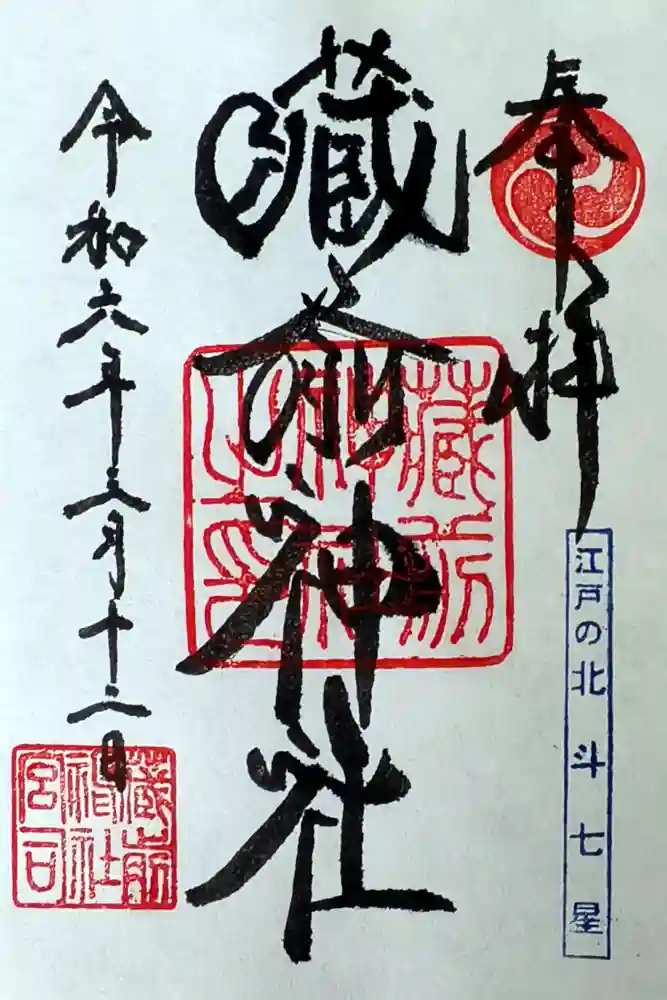 奉拝
江戸の北斗七星
藏前神社
藏前
神社
之印
令和六年三月十二日
藏前
神社
宮司